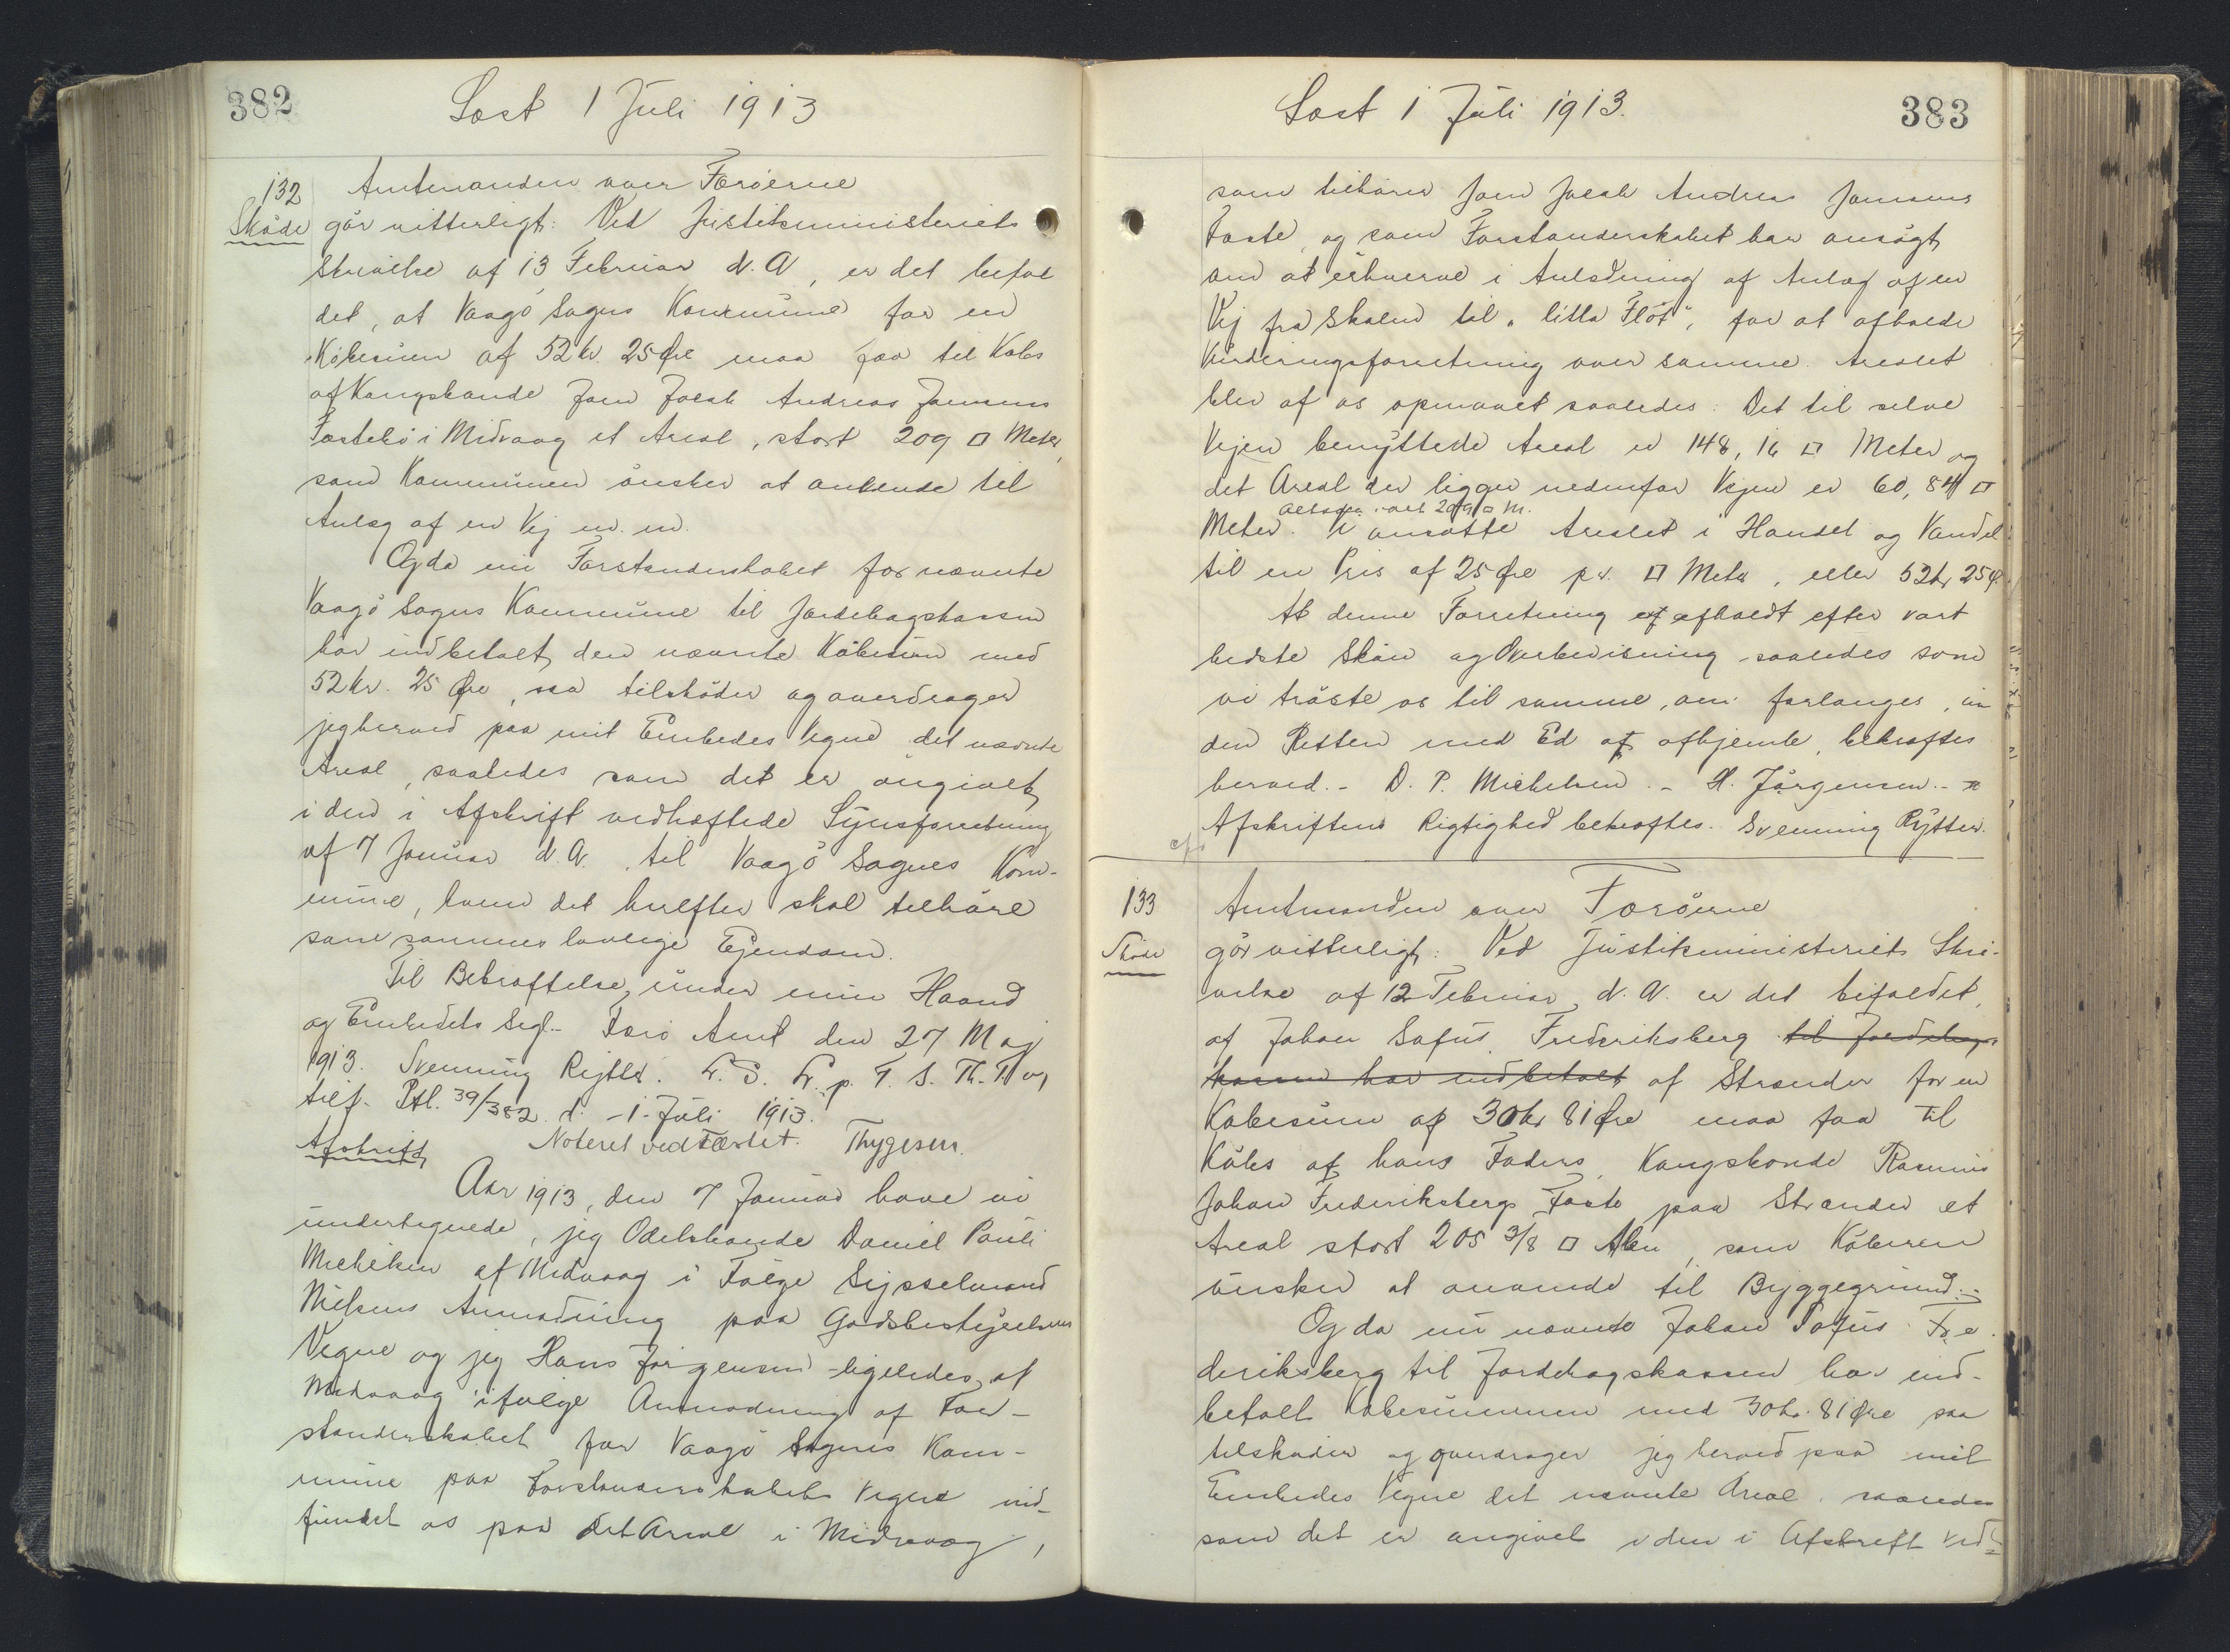 382
Læst 1 Juli 1913
132
Skøde
Amtmanden over Færøerne
gör vitterligt: Ved Justitsministeriets
Skrivelse af 13 Februar d. A., er det bifal
det, at Vaagö Sogns Kommune for en
Köbesum af 52 kr. 25 Øre maa faa til Köbs
af Kongsbonde Joen Jacob Andreas Joensens
Fæstebö i Midvaag et Areal, stort 209 □ Meter,
som Kommunen önsker at anvende til
Anlæg af en Vej m. m.
Og da nu Forstanderskabet for nævnte
Vaagö Sogns Kommune til Jordebogskassen
har indbetalt den nævnte Köbesum med
52 kr. 25 Øre, saa tilsköder og overdrager
jeg herved paa mit Embedes Vegne det nævnte
Areal, saaledes som det er angivet
i den i Afskrift vedhæftede Synsforretning
af 7 Januar d. A. til Vaagö Sogns Kom-
mune, hvem det herefter skal tilhöre
som sammes lovlige Ejendom.
Til Bekræftelse under min Haand
og Embedets Segl. Færö Amt den 27 Maj
1913. Svenning Rytter. L. S. L. p. T. S. Th. T og
tilf. Ptl. 39/382 d. -1- Juli 1913.
Noteret ved Fæstet. Thygesen.
Afskrift
Aar 1913, den 7 Januar have vi
undertegnede, jeg Odelsbonde Daniel Pauli
Michelsen af Midvaag i Fölge Sysselmand
Nielsens Anmodning paa Godsbestyrelsens
Vegne og jeg Hans Jörgensen ligeledes af
Midvaag ifölge Anmodning af For-
standerskabet for Vaagö Sogns Kom-
mune paa Forstanderskabets Vegne ind-
fundet os paa det Areal i Midvaag,
Læst 1 Juli 1913.
383
som tilhörer Joen Jacob Andreas Joensens
Fæste, og som Forstanderskabet har ansögt
om at erhverve i Anledning af Anlæg af en
Vej fra Skolen til „litla Fløt“, for at afholde
Vurderingsforretning over samme. Arealet
blev af os opmaalt saaledes: Det til selve
Vejen benyttede Areal er 148,16 □ Meter og
det Areal der ligger nedenfor Vejen er 60,84 □
altsaa ialt 209 □ M.
Meter. Vi ansatte Arealet i Handel og Vandel
til en Pris af 25 Øre pr. □ Meter, eller 52 kr 25 Ø.
At denne Forretning er afholdt efter vort
bedste Skön og Overbevisning saaledes som
vi tröste os til samme, om forlanges, in
den Retten med Ed at afhjemle, bekræftes
herved. - D. P. Michelsen. - H. Jörgensen. -
Afskriftens Rigtighed bekræftes. Svenning Rytter.
133
Skøde
Amtmanden over Færöerne
gör vitterligt: Ved Justitsministeriets Skri-
velse af 12 Februar d. A. er det bifaldet,
at Johan Sofus Frederiksberg til Jordebogs-
kassen har indbetalt af Strender for en
Köbesum af 30 kr 81 Øre maa faa til
Köbs af hans Faders, Kongsbonde Rasmus
Johan Frederiksbergs Fæste paa Strender et
Areal stort 205 3/8 □ Alen, som Köberen
önsker at anvende til Byggegrund.-
Og da nu nævnte Johan Sofus Fre
deriksberg til Jordebogskassen har ind-
betalt Köbesummen med 30 kr. 81 Øre saa
tilsköder og overdrager jeg herved paa mit
Embedes Vegne det nævnte Areal saaledes
som det er angivet i den i Afskrift ved=